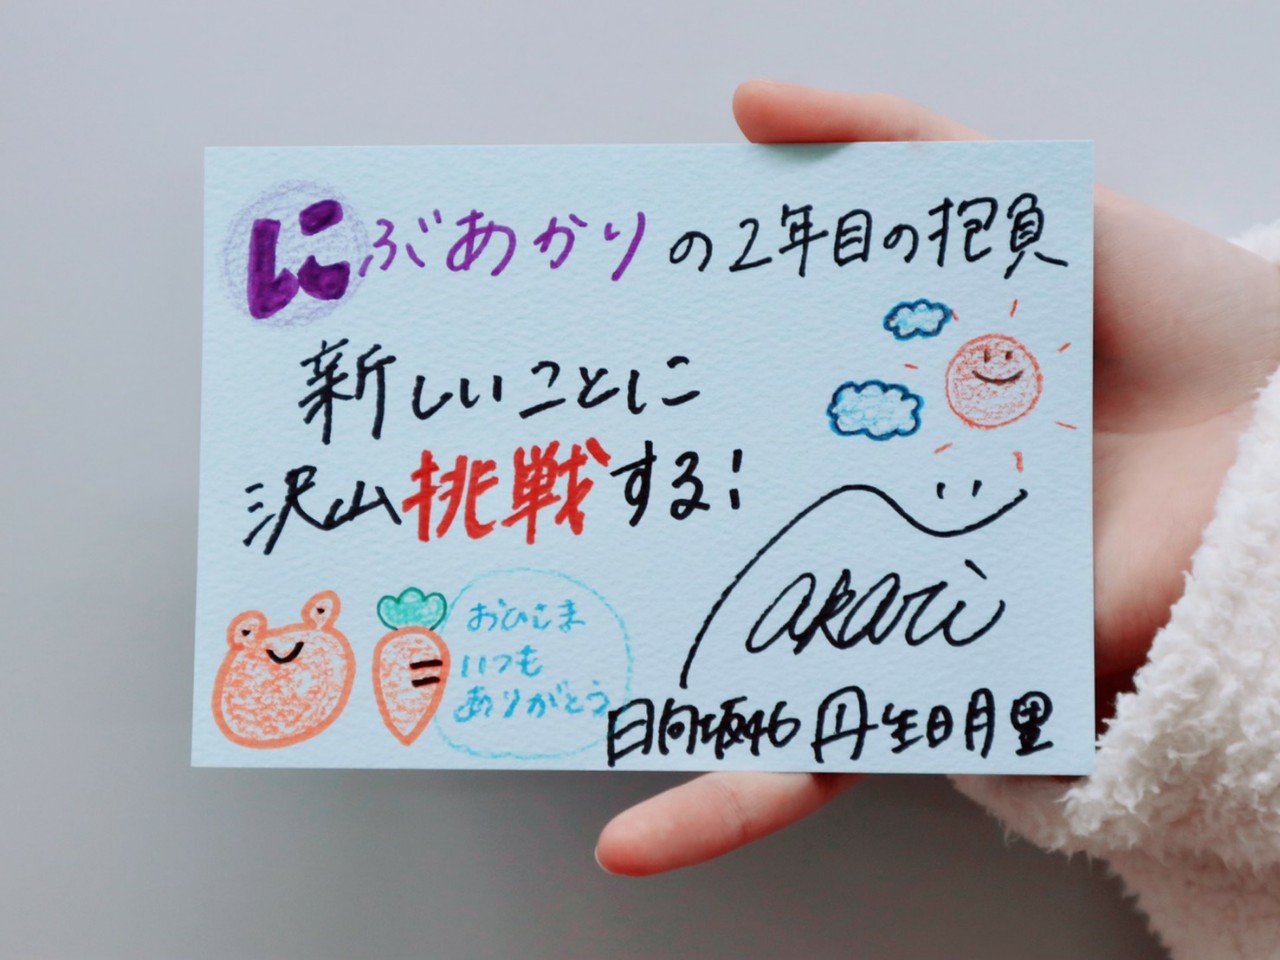 にぶあかりの2年目の抱負
新しいことに
沢山挑戦する!
akari
おひさま
いつも
ありがとう
日向坂46 丹生明里